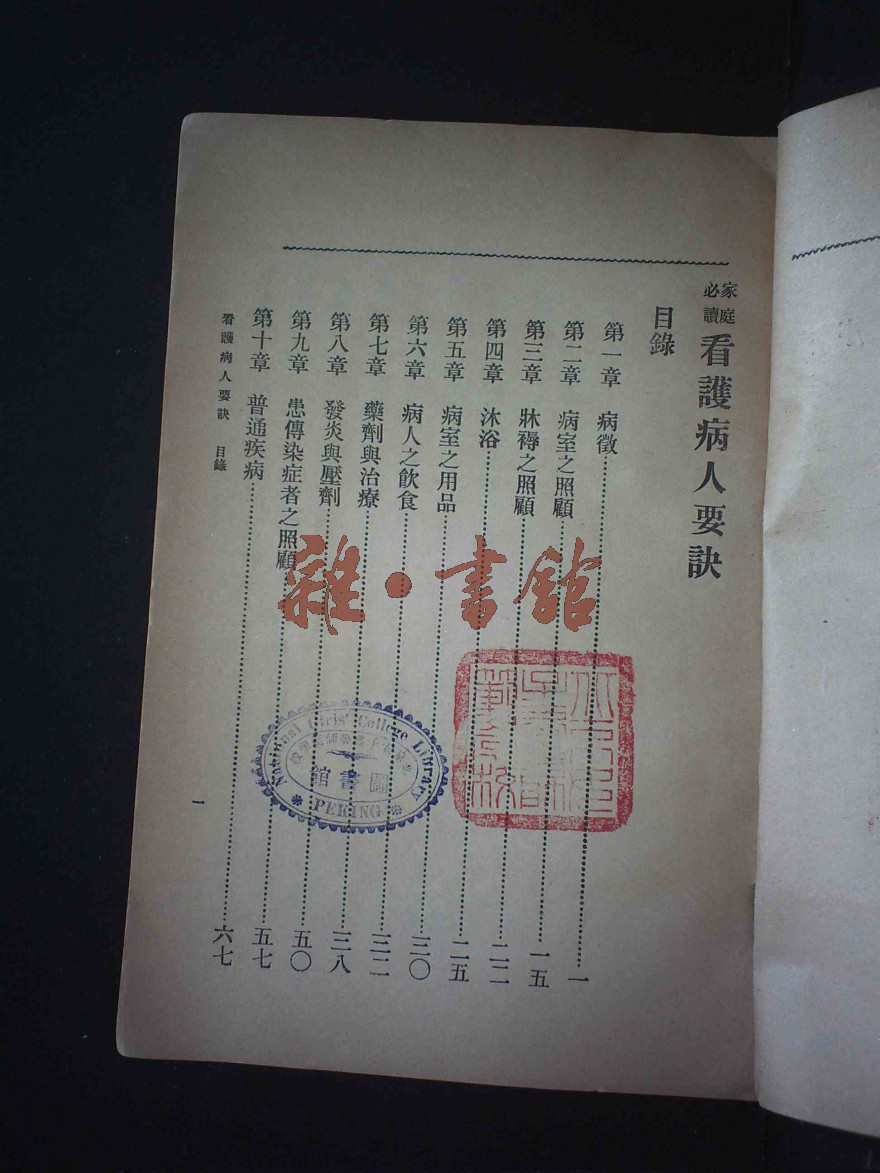 家庭必讀 看護病人要訣
目錄
第一章 病徵……一
第二章 病室之照顧……一五
第三章 牀褥之照顧……二二
第四章 沐浴……二五
第五章 病室之用品……三〇
第六章 病人之飲食……三二
第七章 藥劑與治療……三八
第八章 發炎與壓劑……五〇
第九章 患傳染症者之照顧……五七
第十章 普通疾病……六七
看護病人要訣 目錄
一
雜·書館
National Girls' College Library
圖書館
PEKING